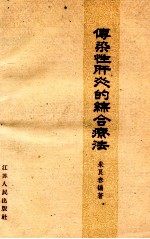 傳染性肝炎的綜合療法
朱良春編著
江苏人民出版社